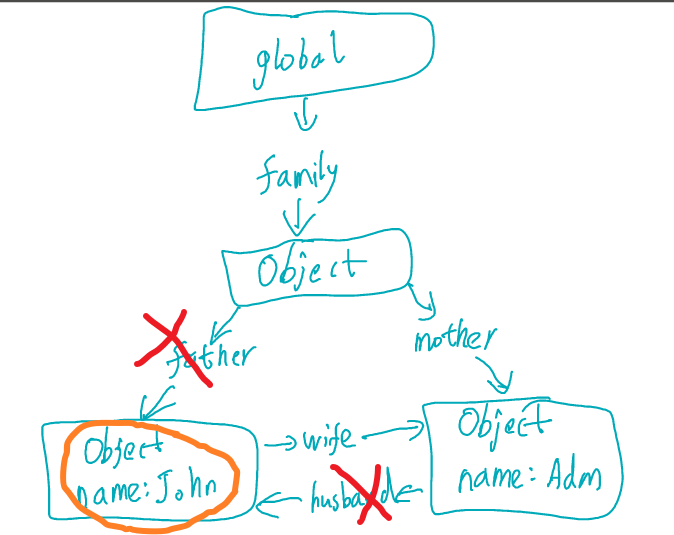 global
family
Object
father
mother
Object
name: John
wife
husband
Object
name: Adm